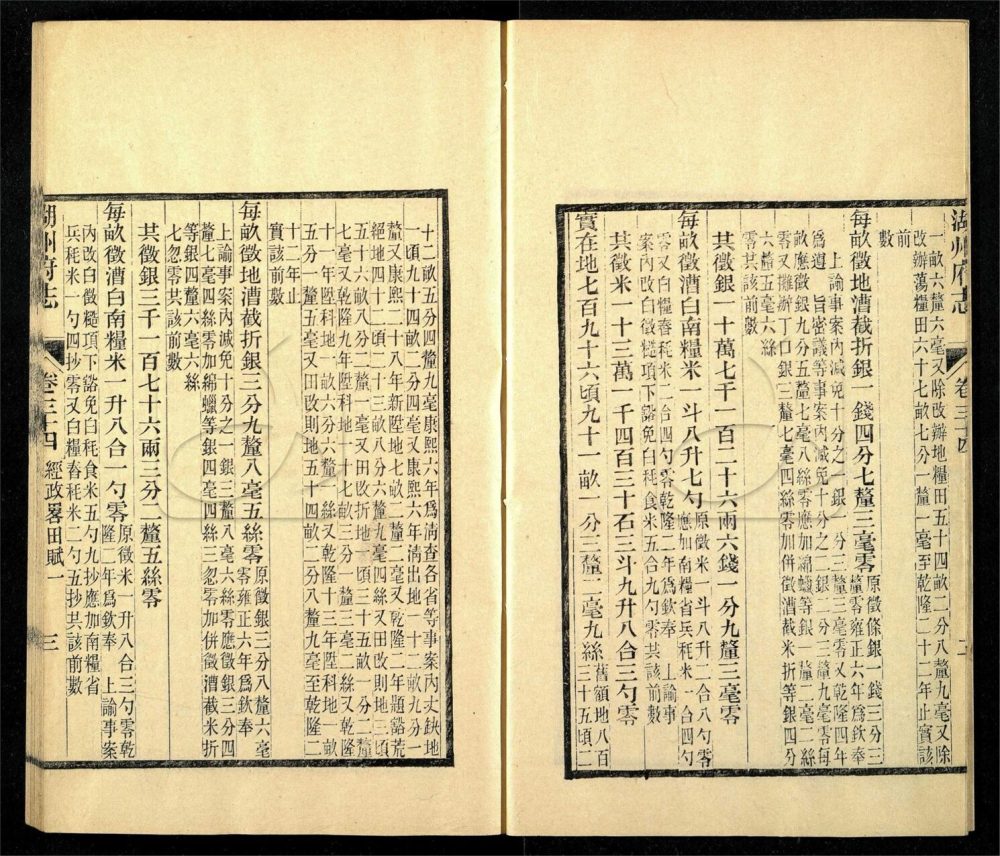 湖州府志 卷三十四 二
一畝六釐六毫又除改辦地糧田五十四畝二分八釐九毫又除
改辦蕩糧田六十七畝七分一釐一毫至乾隆二十二年止實該
前
數
每畝徵地漕截折銀一錢四分七釐三毫零原徵條銀一錢三分三
釐零雍正六年爲欽奉
上諭事案內減免十分之一銀一分三釐三毫零又乾隆四年
爲遵 旨密議等事案內減免十分之二銀二分三釐九毫零每
畝應徵銀九分五釐七毫八絲零應加綿蠟等銀一釐二毫二絲
零又攤辦丁口銀三釐七毫四絲零加併徵漕截米折等銀四分
六釐五毫六絲
零其該前數
共徵銀一十萬七千一百二十六兩六錢一分九釐三毫零
每畝徵漕白南糧米一斗八升七勺原徵米一斗八升二合八勺零
應加南糧省兵秏米一合四勺
零又白糧舂秏米二合四勺零乾隆二年爲欽奉 上諭事
案內改白徵糙項下豁免白秏食米五合九勺零共該前數
共徵米一十三萬一千四百三十石三斗九升八合三勺零
實在地七百九十六頃九十一畝一分三釐二毫九絲舊額地八百
三十五頃二
十二畝五分四釐九毫康熙六年爲淸查各省等事案內丈缺地
一頃九十四畝二分二釐四毫又康熙六年淸出地一十二畝九分一
釐又康熙二十八年新陞地七畝二釐二毫又乾隆二年題豁荒
絕地四十二頃二十三畝八分六釐九毫四絲又田改則地三頃
五十六畝八分二釐一毫又田改折地一頃三十五畝一分二釐
七毫又乾隆九年陞科地一十七畝三分一釐三毫二絲又乾隆
十一年陞科地一畝六分六釐一絲又乾隆十三年陞科地一畝
五分一釐五毫又田改則地五十四畝二分八釐九毫至乾隆二
十二年止
實該前數
每畝徵地漕截折銀三分九釐八毫五絲零原徵銀三分八釐六毫
零雍正六年爲欽奉
上諭事案內減免十分之一銀三釐八毫六絲零應徵銀三分四
釐七毫四絲零加綿蠟等銀四毫四絲三忽零加併徵漕截米折
等銀四釐六毫六絲
七忽零共該前數
共徵銀三千一百七十六兩三分二釐五絲零
每畝徵漕白南糧米一升八合一勺零原徵米一升八合三勺零乾
隆二年爲欽奉 上諭事案
內改白徵糙項下豁免白秏食米五勺九抄應加南糧省
兵秏米一勺四抄零又白糧舂秏米二勺五抄共該前數
湖州府志 卷三十四 經政畧田賦一 三